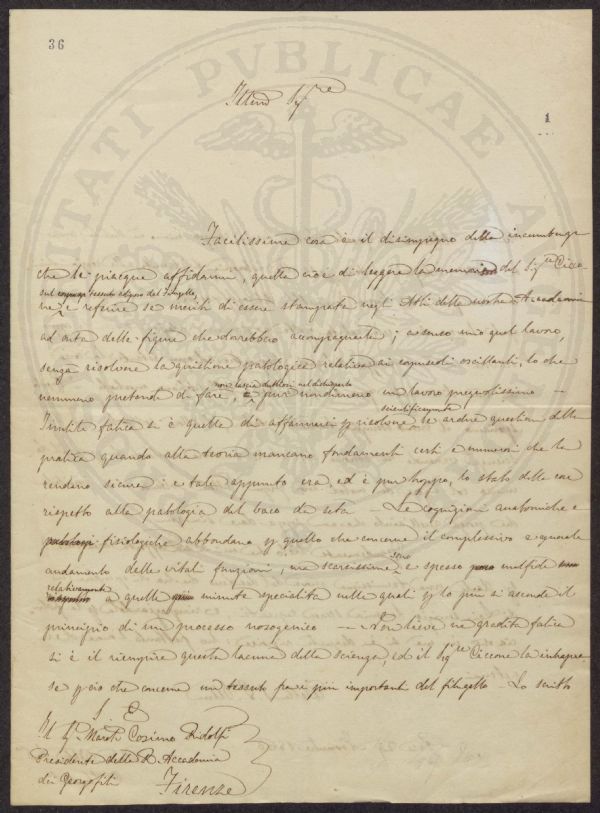 36
PUBLICAE
1
Illmo Sigre
Facilissima cosa è il disimpegno della incumbenza
che le piacque affidarmi, quella cioè di leggere la memoria del Sigre Cicco-
sul tessuto adiposo del Filugello,
ne, e referire se meriti di essere stampata negli Atti della nostra Accademia
ad onta delle figure che dovrebbero accompagnarla; a senso mio quel lavoro,
senza risolvere la quistione patologica relativa ai corpuscoli oscillanti, lo che
non lascia dubbioso nel dichiararlo
nemmeno pretende di fare, è pur nondimeno un lavoro pregevolissimo —
scientificamente
Inutile fatica si è quella di affannarsi p risolvere le ardue question della
pratica quando alla teoria mancano fondamenti certi e numerosi che la
rendano sicura: e tale appunto era, ed è pur troppo, lo stato delle cose
rispetto alla patologia del baco da seta — Le cognizioni anatomiche e
fisiologiche abbondano p quello che concerne il complessivo e generale
andamento delle vitali funzioni, ma scarsissime sono e spesso malfide
relativamente
a quelle minute specialità nelle quali p lo più si asconde il
principio di un processo nosogenico — Non lieve ne gradita fatica
si è il riempire questa lacuna della scienza, ed il Sigre Ciccone la intrapre-
se p ciò che concerne un tessuto fra i più importanti del filugello — Lo scritto
S. E.
Il Sr. March. Cosimo Ridolfi
Presidente della R. Accademia
dei Georgofili
Firenze